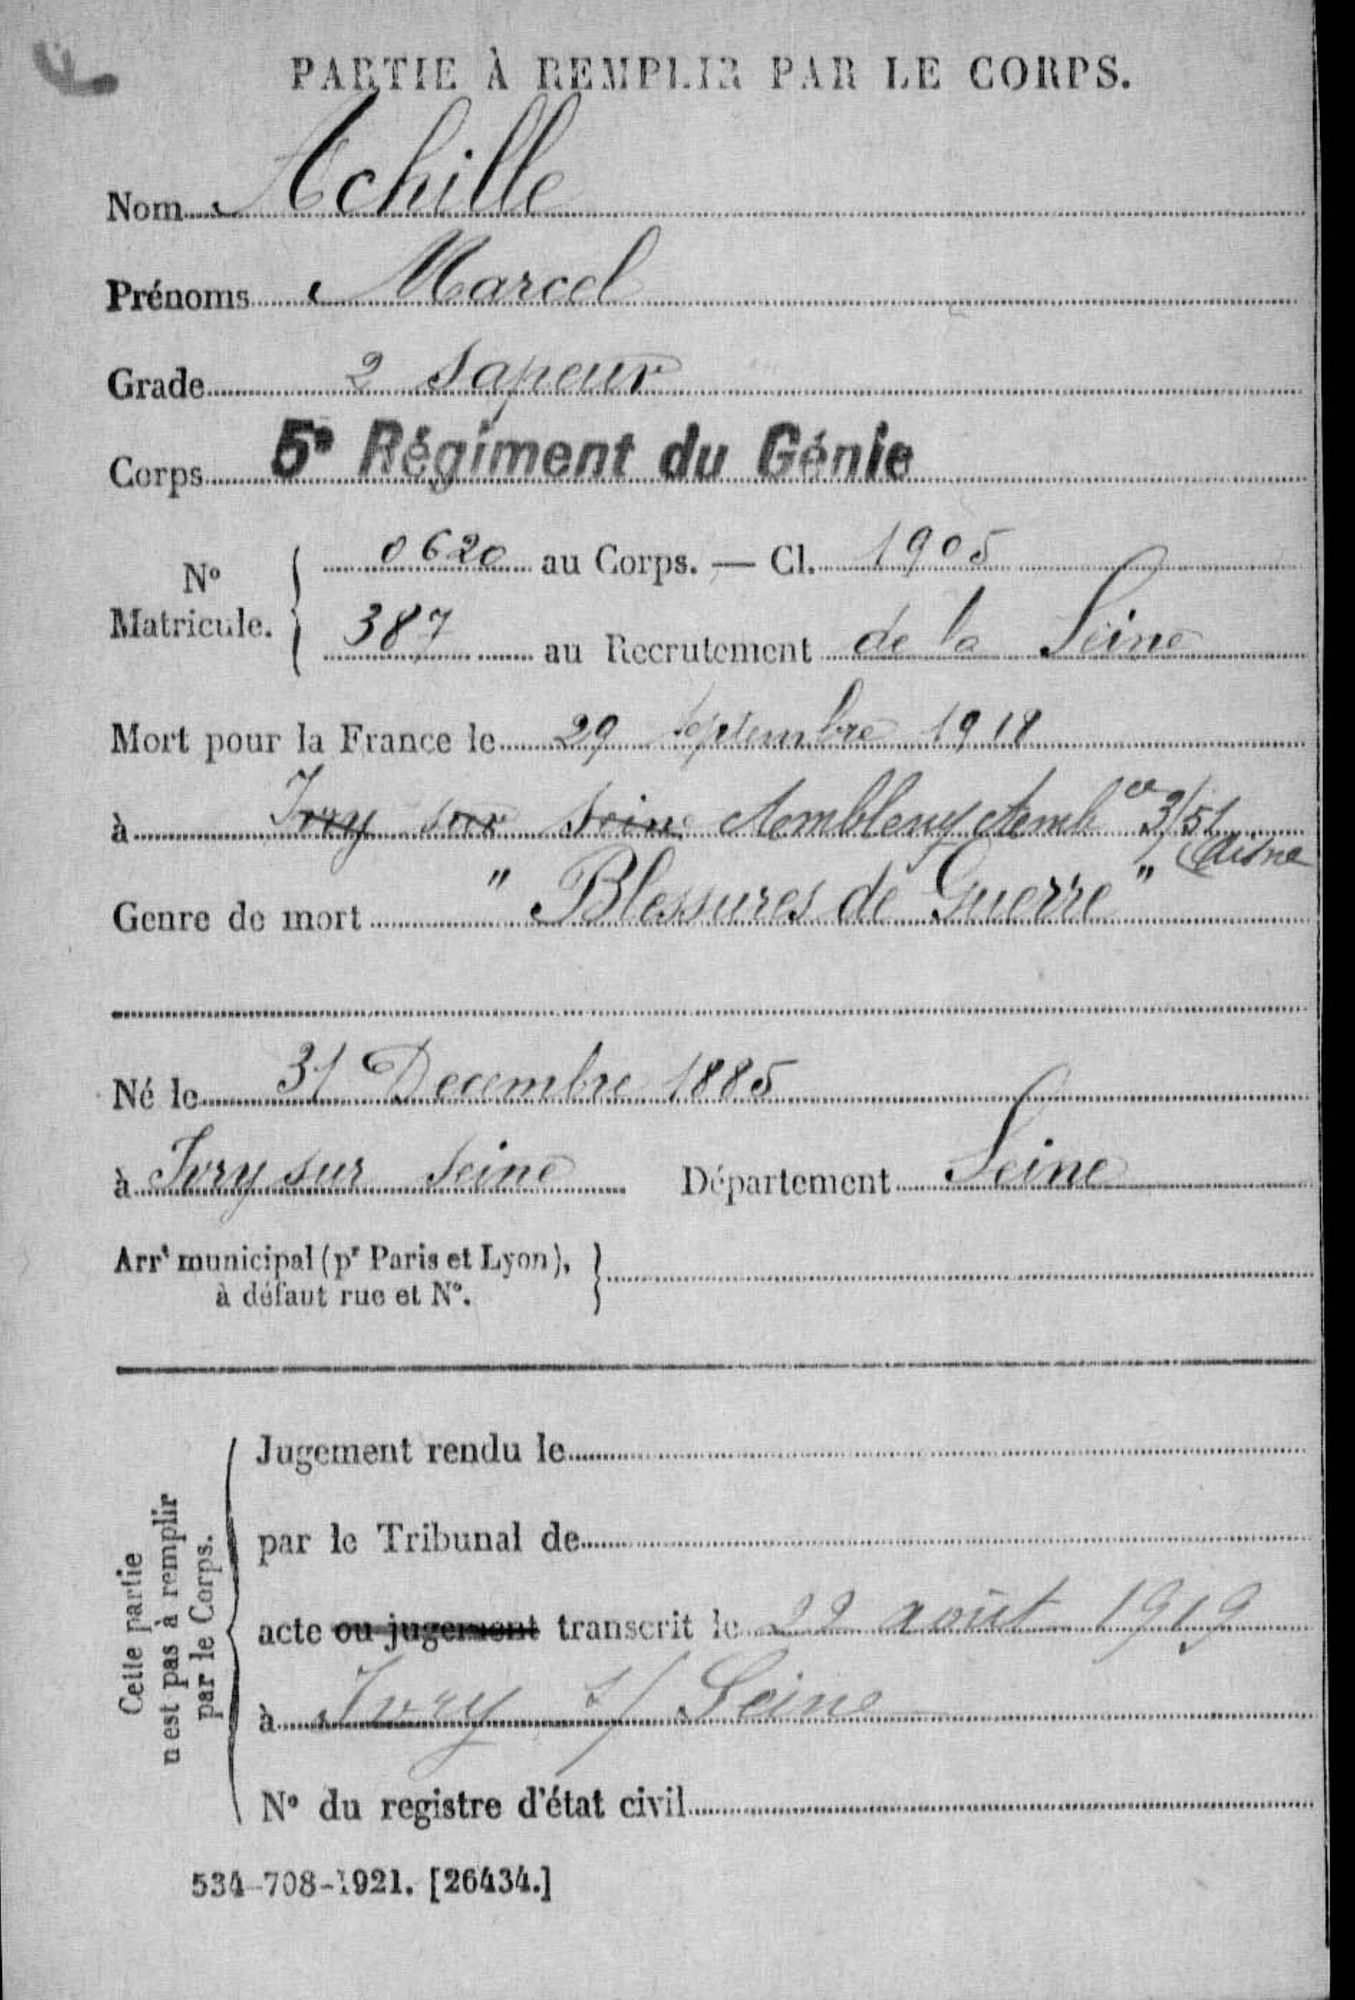 PARTIE À REMPLIR PAR LE CORPS.
Nom Achille
Prénoms Marcel
Grade 2 Sapeur
Corps 5e Régiment du Génie
No Matricule. { 0620 au Corps. — Cl. 1905
387 au Recrutement de la Seine
Mort pour la France le 29 Septembre 1918
à Ivry sur Seine Ambleny Amb ce 3/51
Aisne
Genre de mort " Blessures de Guerre "
Né le 31 Decembre 1885
à Ivry sur Seine Département Seine
Arrt municipal (pr Paris et Lyon),
à défaut rue et No. }
Cette partie
n'est pas à remplir
par le Corps.
Jugement rendu le
par le Tribunal de
acte ou jugement transcrit le 22 août 1919
à Ivry s/ Seine
No du registre d'état civil
534-708-1921. [26434.]